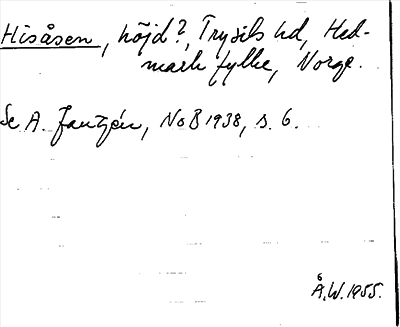 Hisåsen, höjd?, Trysils hd, Hed-
mark fylke, Norge.
Se A. Janzén, NoB 1938, s. 6.
Å.W. 1955.